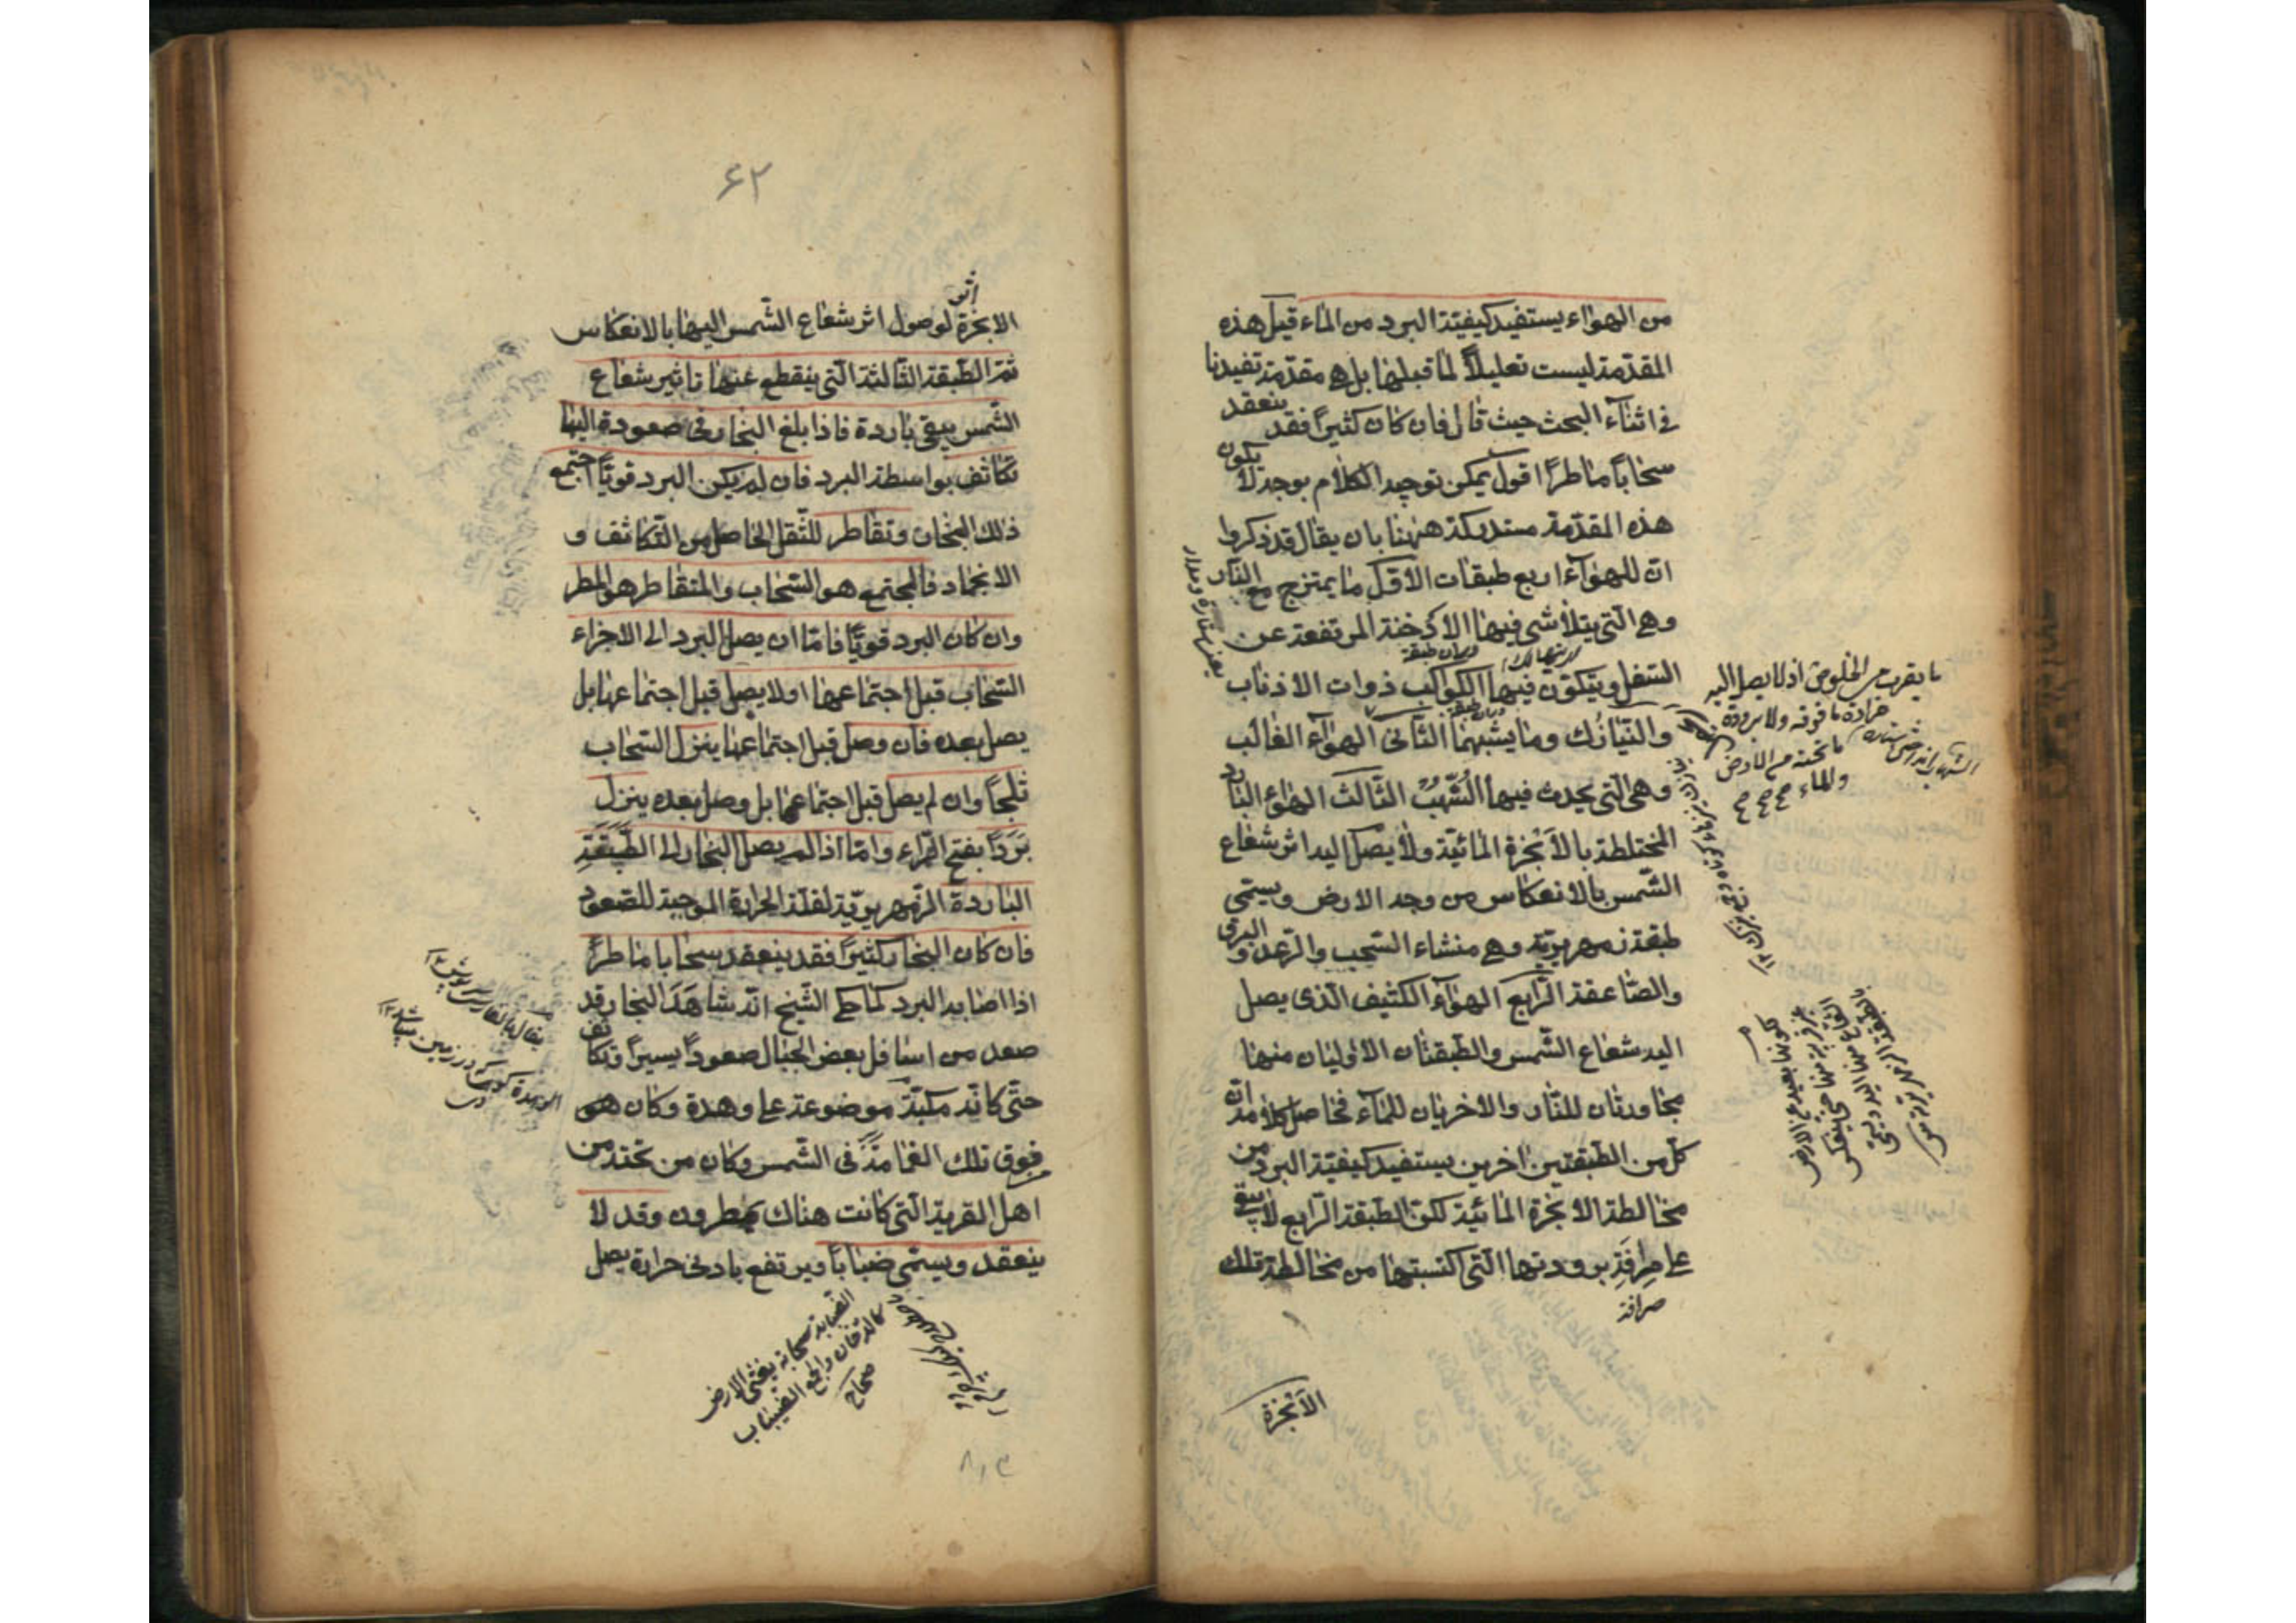 من الهواء يستفيد كيفية البرد من الماء قيل هذه
المقدمة ليست تعليلاً لما قبلها بل هي مقدمة تفيدنا
في اثناء البحث حيث قال فان كان كثيراً فقد ينعقد
سحاباً ماطراً اقول يمكن توجيه الكلام بوجه لا يكون
هذه المقدمة مستدركة ههنا بان يقال قد ذكروا
ان للهواء اربع طبقات الاول ما يمتزج مع النار
وهي التي يتلاشى فيها الادخنة المرتفعة عن
السفل ويتكون فيها الكواكب ذوات الاذناب
والنيازك وما يشبهها الثاني الهواء الغالب
وهي التي يحدث فيها الشهب الثالث الهواء البارد
المختلطة بالابخرة المائية ولا يصل اليه اثر شعاع
الشمس بالانعكاس من وجه الارض ويسمى
طبقة زمهريرية وهي منشاء السحب والرعد و البرق
والصاعقة الرابع الهواء الكثيف الذي يصل
اليه شعاع الشمس والطبقتان الاوليان منها
مجاورتان للنار والاخريان للماء فحاصل كلامه ان
كل من الطبقتين اخرين يستفيد كيفية البرد من
مخالطة الابخرة المائية لكن الطبقة الرابع لا يبقى
على صرافة برودتها التي اكتسبتها من مخالطة تلك
صرافة
الأبخرة
ما يقرب من الخلوص اذ لا يصل اليه
حرارة ما فوقه ولا برودة
ما تحته من الارض
والماء
٦٢
الابخرة لوصول اثر شعاع الشمس اليها بالانعكاس
ثم الطبقة الثالثة التي ينقطع عنها تاثير شعاع
الشمس يبقى باردة فاذا بلغ البخار في صعوده اليها
تكاثف بواسطة البرد فان لم يكن البرد قوياً اجتمع
ذلك البخار وتقاطر للثقل الحاصل من التكاثف و
الانجماد فالمجتمع هو السحاب والمتقاطر هو المطر
وان كان البرد قوياً فاما ان يصل البرد الى الاجزاء
السحاب قبل اجتماعها او لا يصل قبل اجتماعها بل
يصل بعده فان وصل قبل اجتماعها ينزل السحاب
ثلجاً وان لم يصل قبل اجتماعها بل وصل بعده ينزل
بَرَداً بفتح الراء واما اذا لم يصل البخار الى الطبقة
الباردة الزمهريرية لقلة الحرارة الموجبة للصعود
فان كان البخار كثيراً فقد ينعقد سحابا ماطراً
اذا اصابه البرد كما حكى الشيخ انه شاهد البخار قد
صعد من اسافل بعض الجبال صعوداً يسيراً وتكاثف
حتى كانه مكبة موضوعة على وهدة وكان هو
فوق تلك الغمامة في الشمس وكان من تحته من
اهل القرية التي كانت هناك يمطرون وقد لا
ينعقد ويسمى ضباباً ويرتفع بادنى حرارة يصل
الضبابة سحابة يغشى الارض
كالدخان والجمع الضباب
صحاح